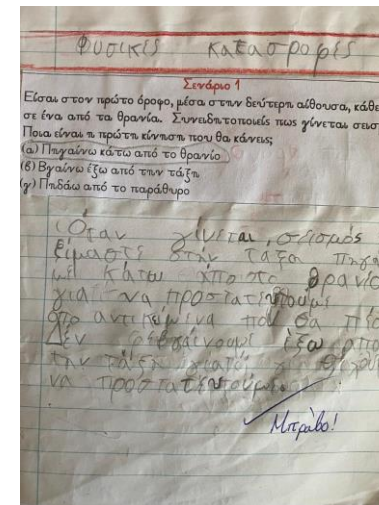 Φυσικές καταστροφές
Σενάριο 1
Είσαι στον πρώτο όροφο, μέσα στην δεύτερη αίθουσα, κάθε
σε ένα από τα θρανία. Συνειδητοποιείς πως γίνεται σεισ
Ποια είναι η πρώτη κίνηση που θα κάνεις;
(α) Πηγαίνω κάτω από το θρανίο
(β) Βγαίνω έξω από την τάξη
(γ) Πηδάω από το παράθυρο
Όταν γίνεται σεισμός
είμαστε στην τάξη πηγαί
με κάτω από το θρανίο
για να προστατευτούμε
από αντικείμενα που θα πέσ
Δεν βγαίνουμε έξω από
την τάξη γιατί
να προστατευτούμε
Μπράβο!